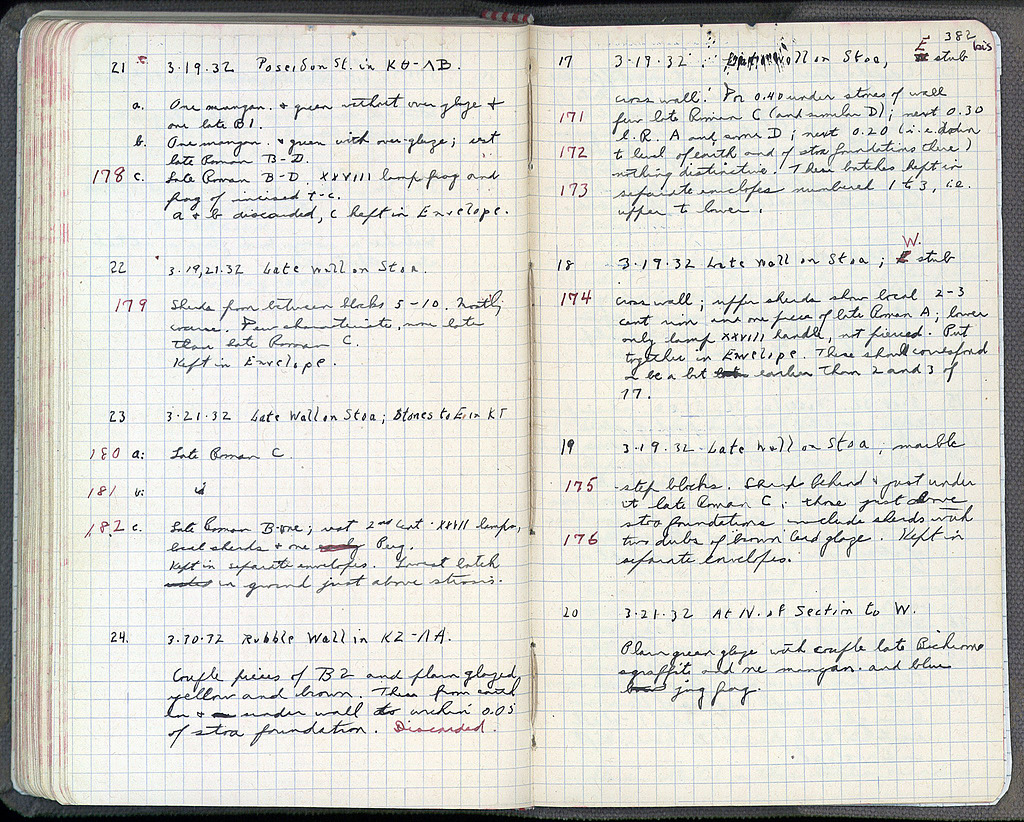 21 3·19·32 Poseidon St. in ΚΘ-ΛΒ.
a. One mangan. & green without over glaze &
one late B1.
b. One mangan. & green with over-glaze; rest
late Roman B-D.
178 c. Late Roman B-D XXVIII lamp frag and
frag of incised t-c.
a & b discarded, c kept in Envelope.
22 3·19,21·32 Late Wall on Stoa.
179 Sherds from between blocks 5-10. Mostly
coarse. Few characteristic, none later
than late Roman C.
Kept in Envelope.
23 3·21·32 Late Wall on Stoa; Stones to E. in ΚΓ
180 a: Late Roman C.
181 b: id
182 c. Late Roman B-one; rest 2nd cent. XXVII lamps,
local sherds & one Perg.
Kept in separate envelopes. Lowest batch
in ground just above strosis.
24. 3·30·32 Rubble Wall in ΚΖ-ΛΑ.
Couple pieces of B2 and plain glazed
yellow and brown. These from earth
in & under wall to within 0.05
of stoa foundation. Discarded.
382 bis
17 3·19·32 : wall on Stoa, E stub
cross wall: For 0.40 under stones of wall
171 few late Roman C (and similar D); next 0.30
l. R. A and some D; next 0.20 (i.e. down
172 to level of earth and of stoa foundations there)
nothing distinctive. These batches kept in
173 separate envelopes numbered 1 to 3, i.e.
upper to lower.
18 3·19·32 Late Wall on Stoa; W. stub
174 cross wall; upper sherds show local 2-3
cent and one piece of late Roman A; lower
only lamp XXVIII handle, not pierced. Put
together in Envelope. These should correspond
or be a bit earlier than 2 and 3 of
17.
19 3·19·32 Late Wall on Stoa, marble
175 step blocks. Sherds behind & just under
it late Roman C; those just above
stoa foundations include sherds with
176 two dubs of brown lead glaze. Kept in
separate envelopes.
20 3·21·32 At N. of Section to W.
Plain green glaze with couple late Bichrome
sgraffito and one mangan. and blue
jug frag.